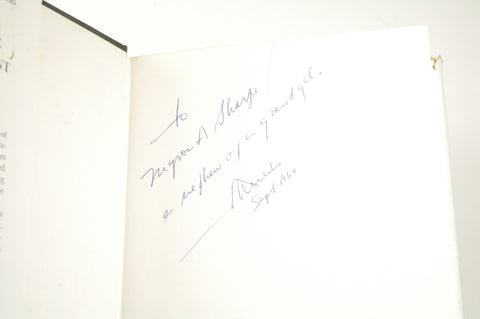 To
Myron A Sharpe
a nephew of a grand gal.
Sept 1964